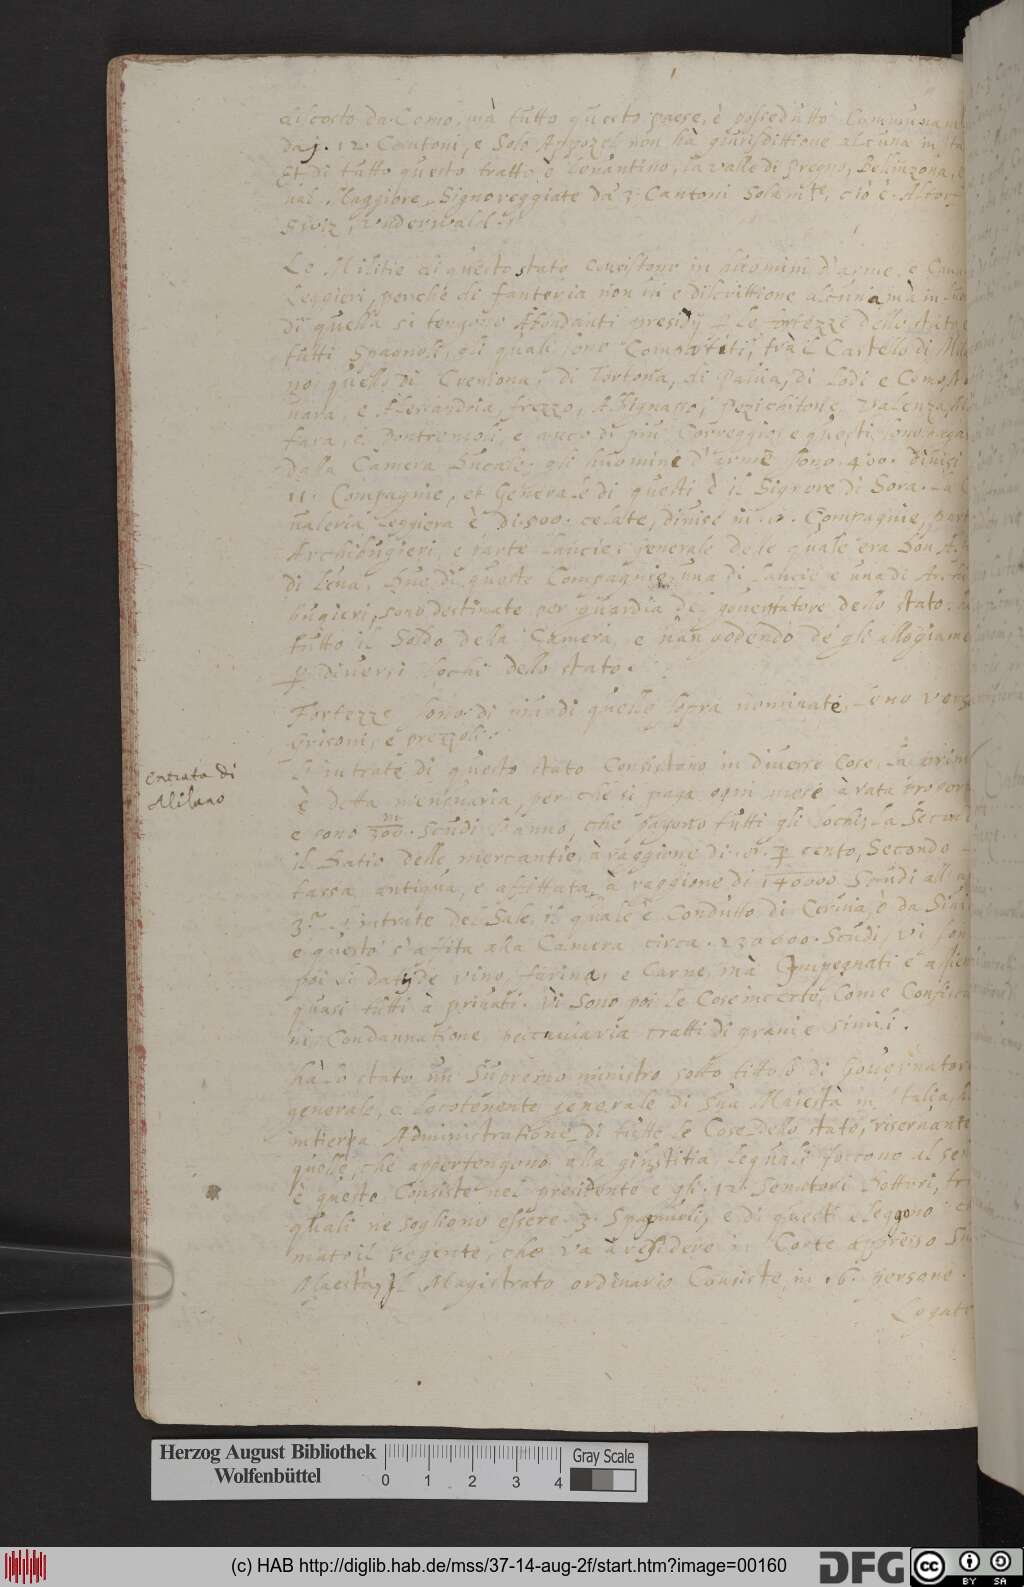 discosto da Como, mà tutto questo paese, è posseduto Communam
da j. 12. Cantoni, e Solo Appozel non hà giurisdittione alcuna in
Et di tutto questo tratto è leuantino, la valle di Bregno, Belinzona,
ual Maggiore, Signoreggiate da 3. Cantoni Solamte, cio è. Altorf
Suiz, Vnderwald.
Le Militie di questo stato Consistono in huomini d'arme, e Caua
Leggieri, perche di fanteria non ui e discrittione alcuna mà in
di quella si tengono Abondanti presidij p le fortezze dello stato
tutti Spagnoli, gli quali sono Compartiti, trà il Castello di Mila
no, quello di Cremona, di Tortona, di Pauia, di Lodi e Como,
uara, e Alessandria, frezzo, Abignasso, Pezichitone, Valenza,
fara, e Pontremoli, e anco di più Correggio, e questi sono paga
dalla Camera Ducale. gli huomini d'arme sono 400. diuisi
11. Compagnie, et Generale di questi è il Signore di Sora. La
ualeria Leggiera è di 500. celate, diuise in 6. Compagnie, part
Archibugieri, e parte Lancie, generale delle quale era Don
di Leua. Due di queste Compagnie, una di Lancie e una di Archi
bugieri, sono destinate per guardia del gouernatore dello stato.
tutto il Soldo della Camera, e uan godendo de gli allogiame
p diuersi lochi dello stato.
Fortezze sono di più di quelle sopra nominate, sono vers
Grisoni, e prezzoli.
Entrata di
Milano
Li intrate di questo stato Consistono in diuerse Cose, La prim
è detta mensuaria, per che si paga ogni mese à rata propor
e sono 300 m. Scudi l'anno, che pagono tutti gli lochi, La Second
il Datio delle mercantie, à raggione di 6. p cento, Secondo
tassa antiqua, e affittata, à raggione di 140000 Scudi all
3.a L'intrate del Sale, il quale è Condutto di Ceruia, ò da
e questo s'afita alla Camera circa 230000. Scudi, Vi son
poi li datij de vino, farina, e Carne, mà Impegnati e alie
quasi tutti à priuati. Vi Sono poi le Cose incerte, Come Confisca
ni, Condannatione pecuniaria tratti di grani e simili.
hà lo stato un Supremo ministro sotto tittolo di Gouernator
generale, e locotenente generale di Sua Maiestà in Italia,
intierra Administratione di tutte le Cose dello stato, riseruante
quelle, che appertengono alla giustitia, lequali toccono al Se
è questo Consiste nel presidente e gli 12. Senatori Dottori, tr
quali ne sogliono essere 3. Spagnuoli, e di questi elegono
mato il Regente, che Và à residere in Corte appresso Su
Maestà, Il Magistrato ordinario Consiste in 6. persone
Logate
Herzog August Bibliothek
Wolfenbüttel
0 1 2 3 4
Gray Scale
(c) HAB http://diglib.hab.de/mss/37-14-aug-2f/start.htm?image=00160
DFG
cc BY SA